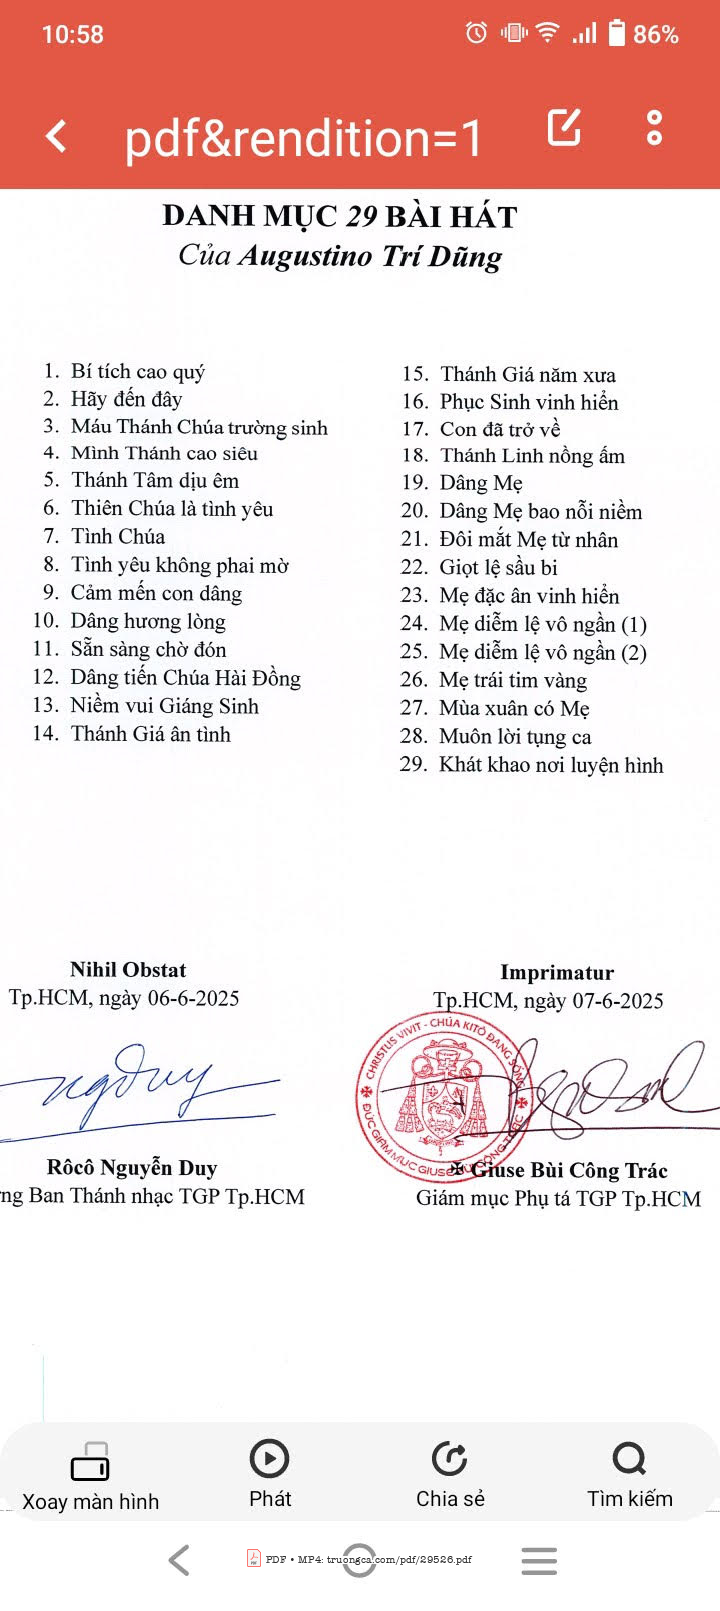 10:58
86%
pdf&rendition=1
DANH MỤC 29 BÀI HÁT
Của Augustino Trí Dũng
1. Bí tích cao quý
2. Hãy đến đây
3. Máu Thánh Chúa trường sinh
4. Mình Thánh cao siêu
5. Thánh Tâm dịu êm
6. Thiên Chúa là tình yêu
7. Tình Chúa
8. Tình yêu không phai mờ
9. Cảm mến con dâng
10. Dâng hương lòng
11. Sẵn sàng chờ đón
12. Dâng tiến Chúa Hài Đồng
13. Niềm vui Giáng Sinh
14. Thánh Giá ân tình
15. Thánh Giá năm xưa
16. Phục Sinh vinh hiển
17. Con đã trở về
18. Thánh Linh nồng ấm
19. Dâng Mẹ
20. Dâng Mẹ bao nỗi niềm
21. Đôi mắt Mẹ từ nhân
22. Giọt lệ sầu bi
23. Mẹ đặc ân vinh hiển
24. Mẹ diễm lệ vô ngần (1)
25. Mẹ diễm lệ vô ngần (2)
26. Mẹ trái tim vàng
27. Mùa xuân có Mẹ
28. Muôn lời tụng ca
29. Khát khao nơi luyện hình
Nihil Obstat
Tp.HCM, ngày 06-6-2025
ngđuy
Rôcô Nguyễn Duy
ng Ban Thánh nhạc TGP Tp.HCM
Imprimatur
Tp.HCM, ngày 07-6-2025
CHRISTUS VIVIT - CHÚA KITÔ ĐANG SỐNG
ĐỨC GIÁM MỤC GIUSE BÙI CÔNG TRÁC
✠ Giuse Bùi Công Trác
Giám mục Phụ tá TGP Tp.HCM
Xoay màn hình
Phát
Chia sẻ
Tìm kiếm
PDF • MP4: truongca.com/pdf/29526.pdf